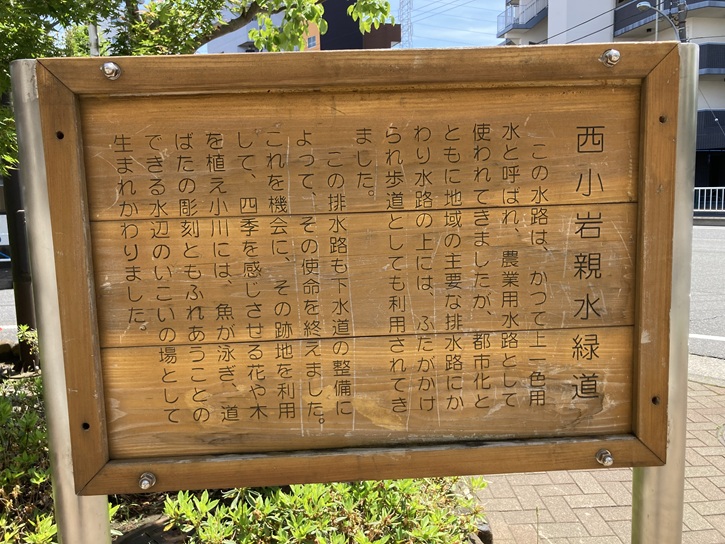 西小岩親水緑道
この水路は、かつて上一色用
水と呼ばれ、農業用水路として
使われてきましたが、都市化と
ともに地域の主要な排水路にか
わり水路の上には、ふたがかけ
られ歩道としても利用されてき
ました。
この排水路も下水道の整備に
よって、その使命を終えました。
これを機会に、その跡地を利用
して、四季を感じさせる花や木
を植え小川には、魚が泳ぎ、道
ばたの彫刻ともふれあうことの
できる水辺のいこいの場として
生まれかわりました。